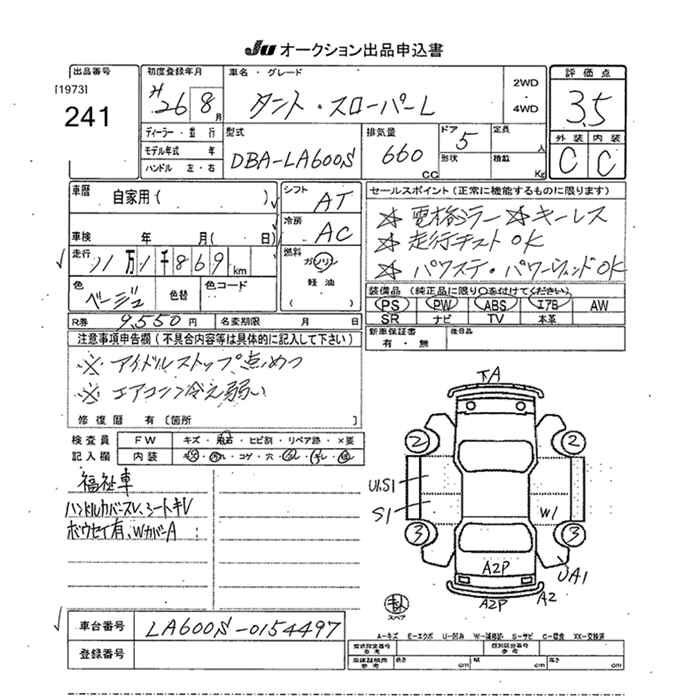 JU オークション出品申込書
出品番号
[1973]
241
初度登録年月
H26 8月
車名・グレード
タント・スローパーL
2WD
4WD
評価点
3.5
外装 内装
C C
ディーラー・並行
モデル年式 年
ハンドル 左・右
型式
DBA-LA600S
排気量
660
CC
ドア
5
形状
定員
人
積載
Kg
車歴
自家用( )
車検 年 月( 日)
走行
11万1千869km
色
ベージュ
色替
色コード
シフト
AT
冷房
AC
燃料
ガソリン
軽油
( )
セールスポイント(正常に機能するものに限ります)
☆電格ミラー ☆キーレス
☆走行テストOK
☆パワステ・パワーウィンドOK
装備品(純正品に限り〇を付けてください)
PS PW ABS エアB AW
SR ナビ TV 本革
新車保証書
有・無
後日品
R券 9,550円 名変期限 月 日
注意事項申告欄(不具合内容等は具体的に記入して下さい)
※アイドルストップ点めつ
※エアコン冷え弱い
修復歴 有[箇所 ]
検査員
記入欄
FW キズ・飛石・ヒビ割・リペア跡・×要
内装
コゲ・穴
福祉車
ハンドルカバースレ、シートキレ
ボウセイ有、WカバーA
下A
2
2
U1S1
S1
W1
3
3
UA1
A2P
A2P
A2
スペア
A-キズ E-エクボ U-凹み W-補修跡 S-サビ C-腐食 XX-交換済
車台番号
LA600S-0154497
登録番号
型式指定番号
類別区分番号
長さ cm 幅 cm 高さ cm